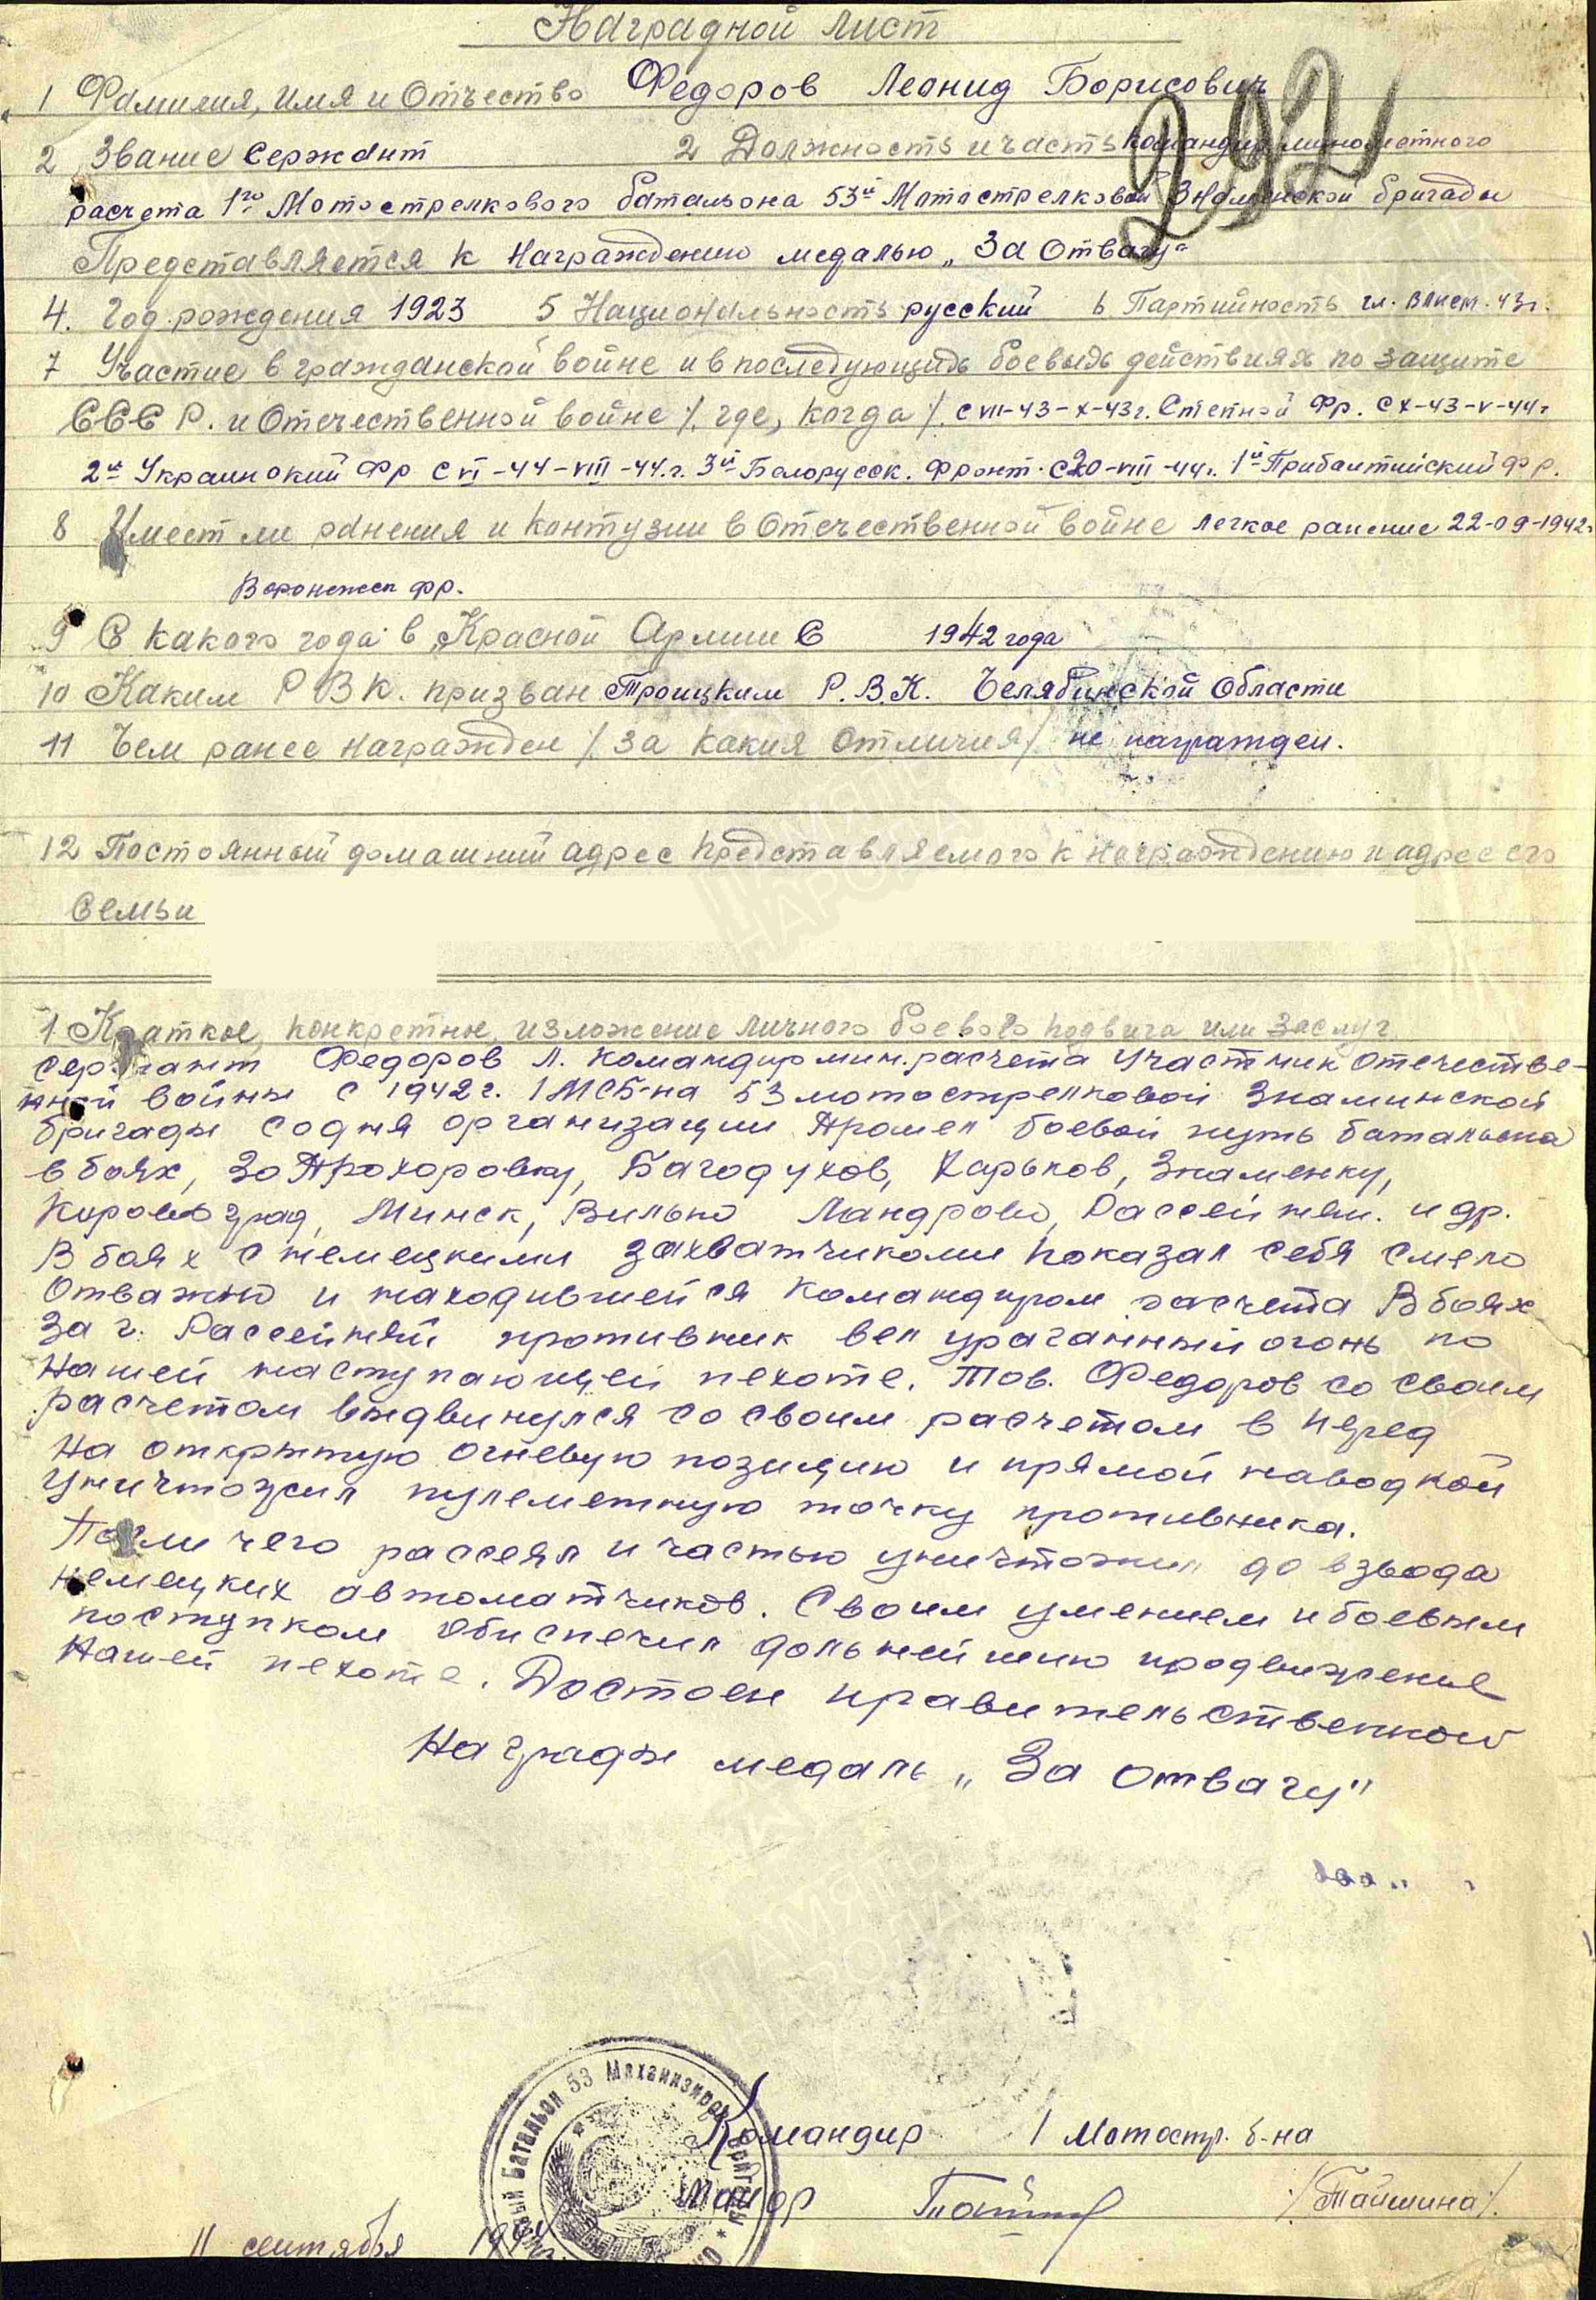 Наградной лист
292
1 Фамилия, имя и Отчество Федоров Леонид Борисович
2 Звание Сержант 2 Должность и часть Командир минометного
расчета 1го Мотострелкового батальона 53й Мотострелковой Знаменской бригады
Представляется к Награждению медалью „За Отвагу"
4. Год рождения 1923 5 Национальность русский 6 Партийность чл. ВЛКСМ. 43г.
7 Участие в гражданской войне и в последующих боевых действиях по защите
СССР. и Отечественной войне /. где, когда /. с VII-43-X-43г. Степной Фр. с X-43-V-44г
2й Украинский Фр с VI-44-VIII-44.г. 3й Белорусск. Фронт. с 20-VIII-44г. 1й Прибалтийский Фр.
8 Имеет ли ранения и контузии в Отечественной войне легкое ранение 22-09-1942г
Воронежск фр.
9 С какого года в Красной Армии С 1942 года
10 Каким РВК. призван Троицким Р.В.К. Челябинской Области
11 Чем ранее награжден /. за какия отличия / не награжден.
12 Постоянный домашний адрес представляемого к награждению и адрес его
семьи
1 Краткое, конкретное изложение личного боевого подвига или заслуг
сержант Федоров Л. Командир мин. расчета участник отечестве-
нной войны с 1942г. 1 МСБ-на 53 мотострелковой Знаминской
бригады со дня организации Прошел боевой путь батальона
в боях, За Прохоровку, Багодухов, Харьков, Знаменку,
Кировоград, Минск, Вильно Ландрово, Рассейняи. и др.
В боях с немецкими захватчиками показал себя смело
Отважно и находившейся командиром расчета В боях
За г. Рассейняй противник вел ураганный огонь по
Нашей наступающей пехоте. Тов. Федоров со своим
расчетом выдвинулся со своим расчетом в перед
На открытую огневую позицию и прямой наводкой
Уничтожил пулеметную точку противника.
Посли чего рассеял и частью уничтожил до взвода
немецких автоматчиков. Своим умением и боевым
поступком обиспечил дальнейшию продвижение
Нашей пехоте. Достоен правительственной
Награды медаль „За отвагу"
Командир 1 Мотостр. б-на
Майор /Тайшина/.
Батальон 53 Механизиров. бригады
11 сентября 194
ПАМЯТЬ НАРОДА